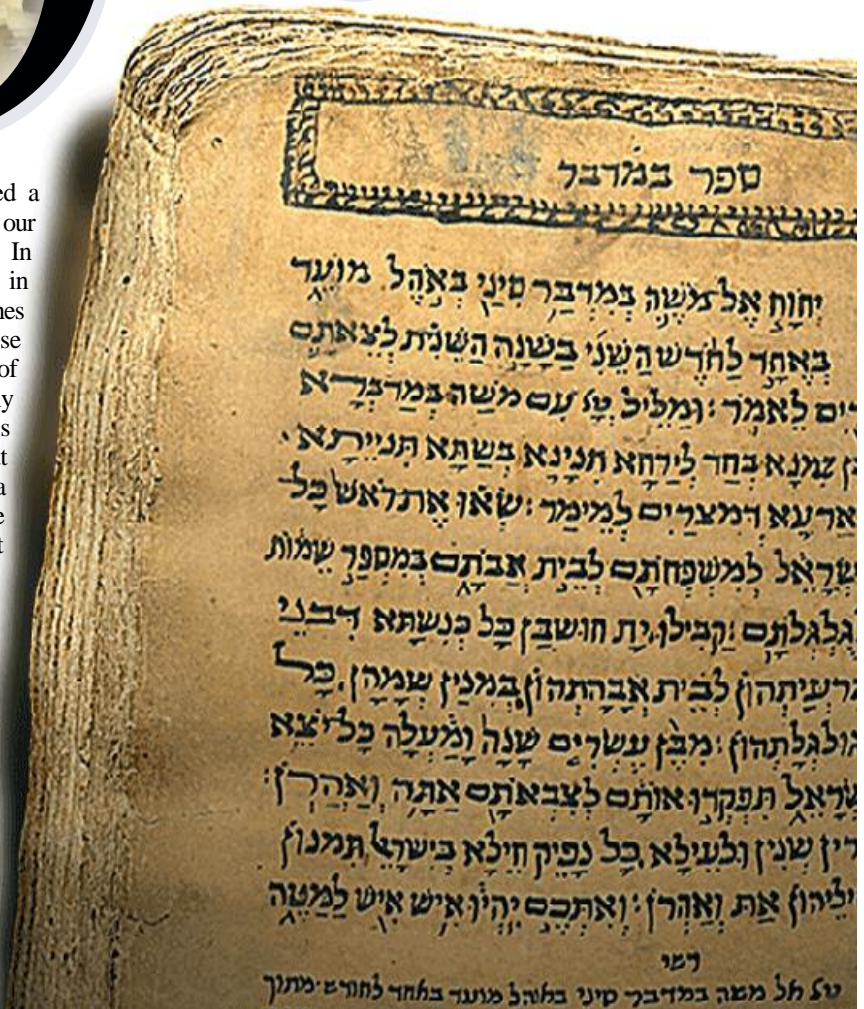 ed a
our
In
in
nes
se
of
y
s
t
a
e
t
ספר במדבר
יְהוָה אֶל מֹשֶׁה בְּמִדְבַּר סִינַי בְּאֹהֶל מוֹעֵד
בְּאֶחָד לַחֹדֶשׁ הַשֵּׁנִי בַּשָּׁנָה הַשֵּׁנִית לְצֵאתָם
רַיִם לֵאמֹר׃ וּמַלִּיל יְיָ עִם מֹשֶׁה בְּמַדְבְּרָא
ן זִמְנָא בְּחַד לְיַרְחָא תִּנְיָנָא בְּשַׁתָּא תִּנְיֵיתָא
אַרְעָא דְמִצְרַיִם לְמֵימַר׃ שְׂאוּ אֶת רֹאשׁ כָּל
שְׂרָאֵל לְמִשְׁפְּחֹתָם לְבֵית אֲבֹתָם בְּמִסְפַּר שֵׁמוֹת
גֻלְגְּלֹתָם׃ קַבִּילוּ יָת חוּשְׁבַּן כָּל כְּנִשְׁתָּא דִבְנֵי
זַרְעֲיָתְהוֹן לְבֵית אֲבָהָתְהוֹן בְּמִנְיַן שְׁמָהָן כָּל
גוּלְגְּלָתְהוֹן׃ מִבֶּן עֶשְׂרִים שָׁנָה וָמַעְלָה כָּל יֹצֵא
שְׂרָאֵל תִּפְקְדוּ אוֹתָם לְצִבְאֹתָם אַתָּה וְאַהֲרֹן׃
רִין שְׁנִין וּלְעֵילָא כָּל נָפֵיק חֵילָא בְּיִשְׂרָאֵל תִּמְנוֹן
ילֵיהוֹן אַתְּ וְאַהֲרֹן׃ וְאִתְּכֶם יִהְיוּ אִישׁ אִישׁ לַמַּטֶּה
רשי
יי אל משה במדבר סיני באוהל מועד באחד לחודש מתוך